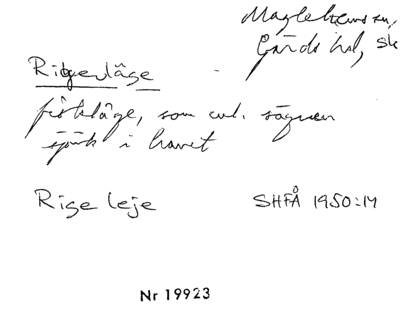 Maglehems sn,
Gärds hd, Sk
Rigerläge
fiskläge, som enl. sägnen
sjönk i havet
Rige leje SHFÅ 1950:14
Nr 19923